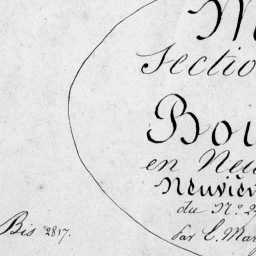 M
Sectio
Bou
en Neu
Neuvièr
du Nº 2
Par E. Mar
Bis 2817.